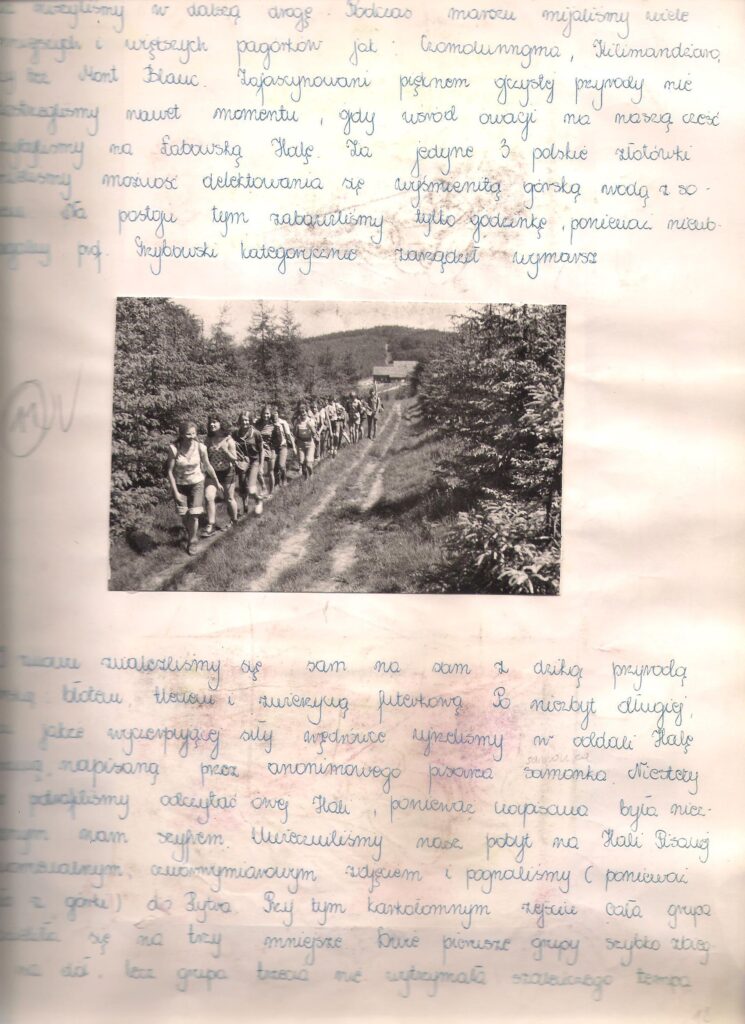 ruszyliśmy w dalszą drogę. Podczas marszu mijaliśmy wiele
mniejszych i większych pagórków jak: Czomolunngma, Kilimandżaro,
czy też Mont Blanc. Zafascynowani pięknem czystej przyrody nie
nawet momentu, gdy wśród owacji na naszą cześć
na Łabowską Halę. Za jedyne 3 polskie złotówki
mieliśmy możność delektowania się wyśmienitą górską wodą z so-
kiem. Na postoju tym zabawiliśmy tylko godzinkę, ponieważ nieub-
łagalny prof. Grybowski kategorycznie zarządził wymarsz
12
znaleźliśmy się sam na sam z dziką przyrodą
błotem, i zwierzyną futerkową. Po niezbyt długiej,
a jakże wyczerpującej siły wędrówce ujrzeliśmy w oddali Halę
napisaną przez anonimowego pisarza samonka. Niestety
nie potrafiliśmy odczytać owej Hali, ponieważ napisana była niez-
nanym nam szyfrem. Uwieczniliśmy nasz pobyt na Hali Pisanej
czwornymiarowym zdjęciem i pognaliśmy (ponieważ
z górki) do Rytra. Przy tym karkołomnym zejściu cała grupa
się na trzy mniejsze. Dwie pierwsze grupy szybko zbieg-
na dół, lecz grupa trzecia nie wytrzymała szaleńczego tempa
12